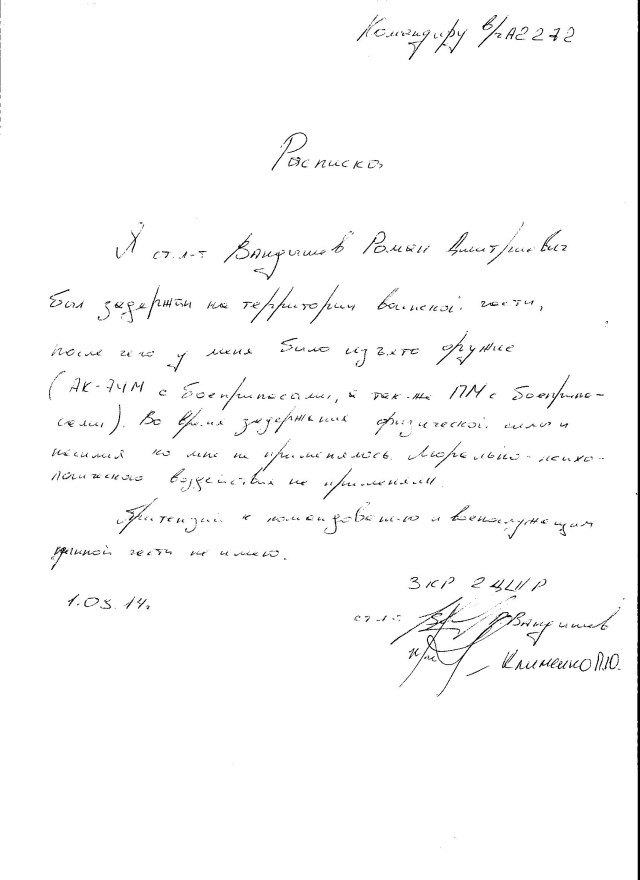 Командиру в/ч А2272
Расписка
Я ст.л-т Вандышев Роман Дмитриевич
был задержан на территории воинской части,
после чего у меня было изъято оружие
(АК-74М с боеприпасами, а так-же ПМ с боеприпа-
сами). Во время задержания физической силы и
насилия ко мне не применялось. Морально-психо-
логического воздействия не применяли.
Притензий к командованию и военослужащим
данной части не имею.
ЗКР 2
1.03.14г.
ст.л-т Вандышев
п/п-к Клименко П.Ю.